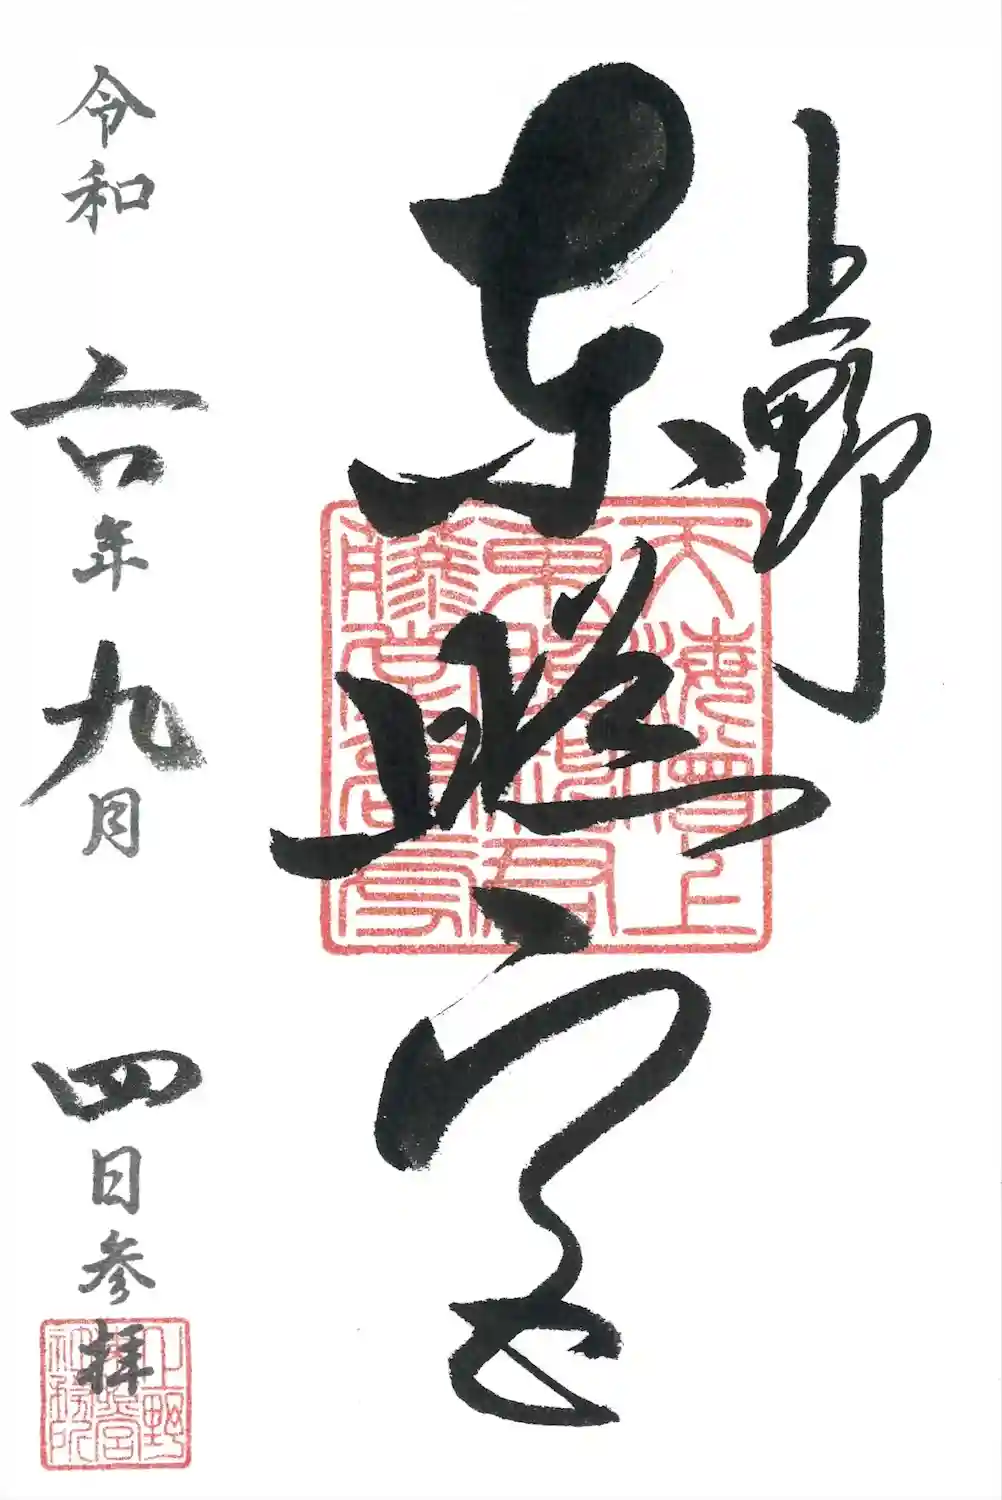 上野
東照宮
天海僧上
令和六年九月四日参拝
上野
東照宮
社務所